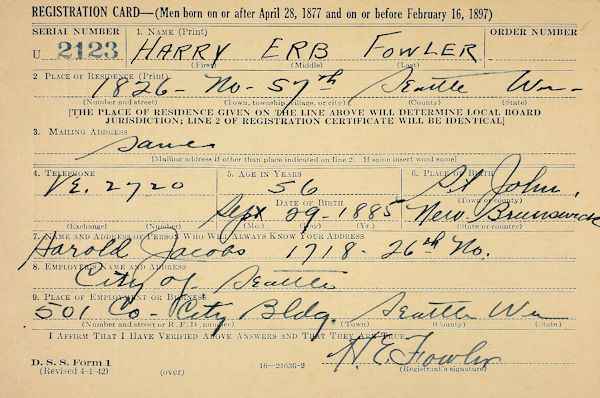 REGISTRATION CARD—(Men born on or after April 28, 1877 and on or before February 16, 1897)
SERIAL NUMBER 1. NAME (Print) ORDER NUMBER
U 2123 HARRY ERB FOWLER
(First) (Middle) (Last)
2. PLACE OF RESIDENCE (Print)
1826- No- 57th Seattle Wn-
(Number and street) (Town, township, village, or city) (County) (State)
[THE PLACE OF RESIDENCE GIVEN ON THE LINE ABOVE WILL DETERMINE LOCAL BOARD
JURISDICTION; LINE 2 OF REGISTRATION CERTIFICATE WILL BE IDENTICAL]
3. MAILING ADDRESS
Same
[Mailing address if other than place indicated on line 2. If same insert word same]
4. TELEPHONE 5. AGE IN YEARS 6. PLACE OF BIRTH
VE. 2720 56 St John,
DATE OF BIRTH (Town or county)
Sept 29-1885 New Brunswick
(Exchange) (Number) (Mo.) (Day) (Yr.) (State or country)
7. NAME AND ADDRESS OF PERSON WHO WILL ALWAYS KNOW YOUR ADDRESS
Harold Jacobs 1718-26th No.
8. EMPLOYER'S NAME AND ADDRESS
City of Seattle
9. PLACE OF EMPLOYMENT OR BUSINESS
501 Co-City Bldg. Seattle Wn
(Number and street or R. F. D. number) (Town) (County) (State)
I AFFIRM THAT I HAVE VERIFIED ABOVE ANSWERS AND THAT THEY ARE TRUE.
H. E. Fowler
D. S. S. Form 1 (Registrant's signature)
(Revised 4-1-42) (over) 16—21630-2